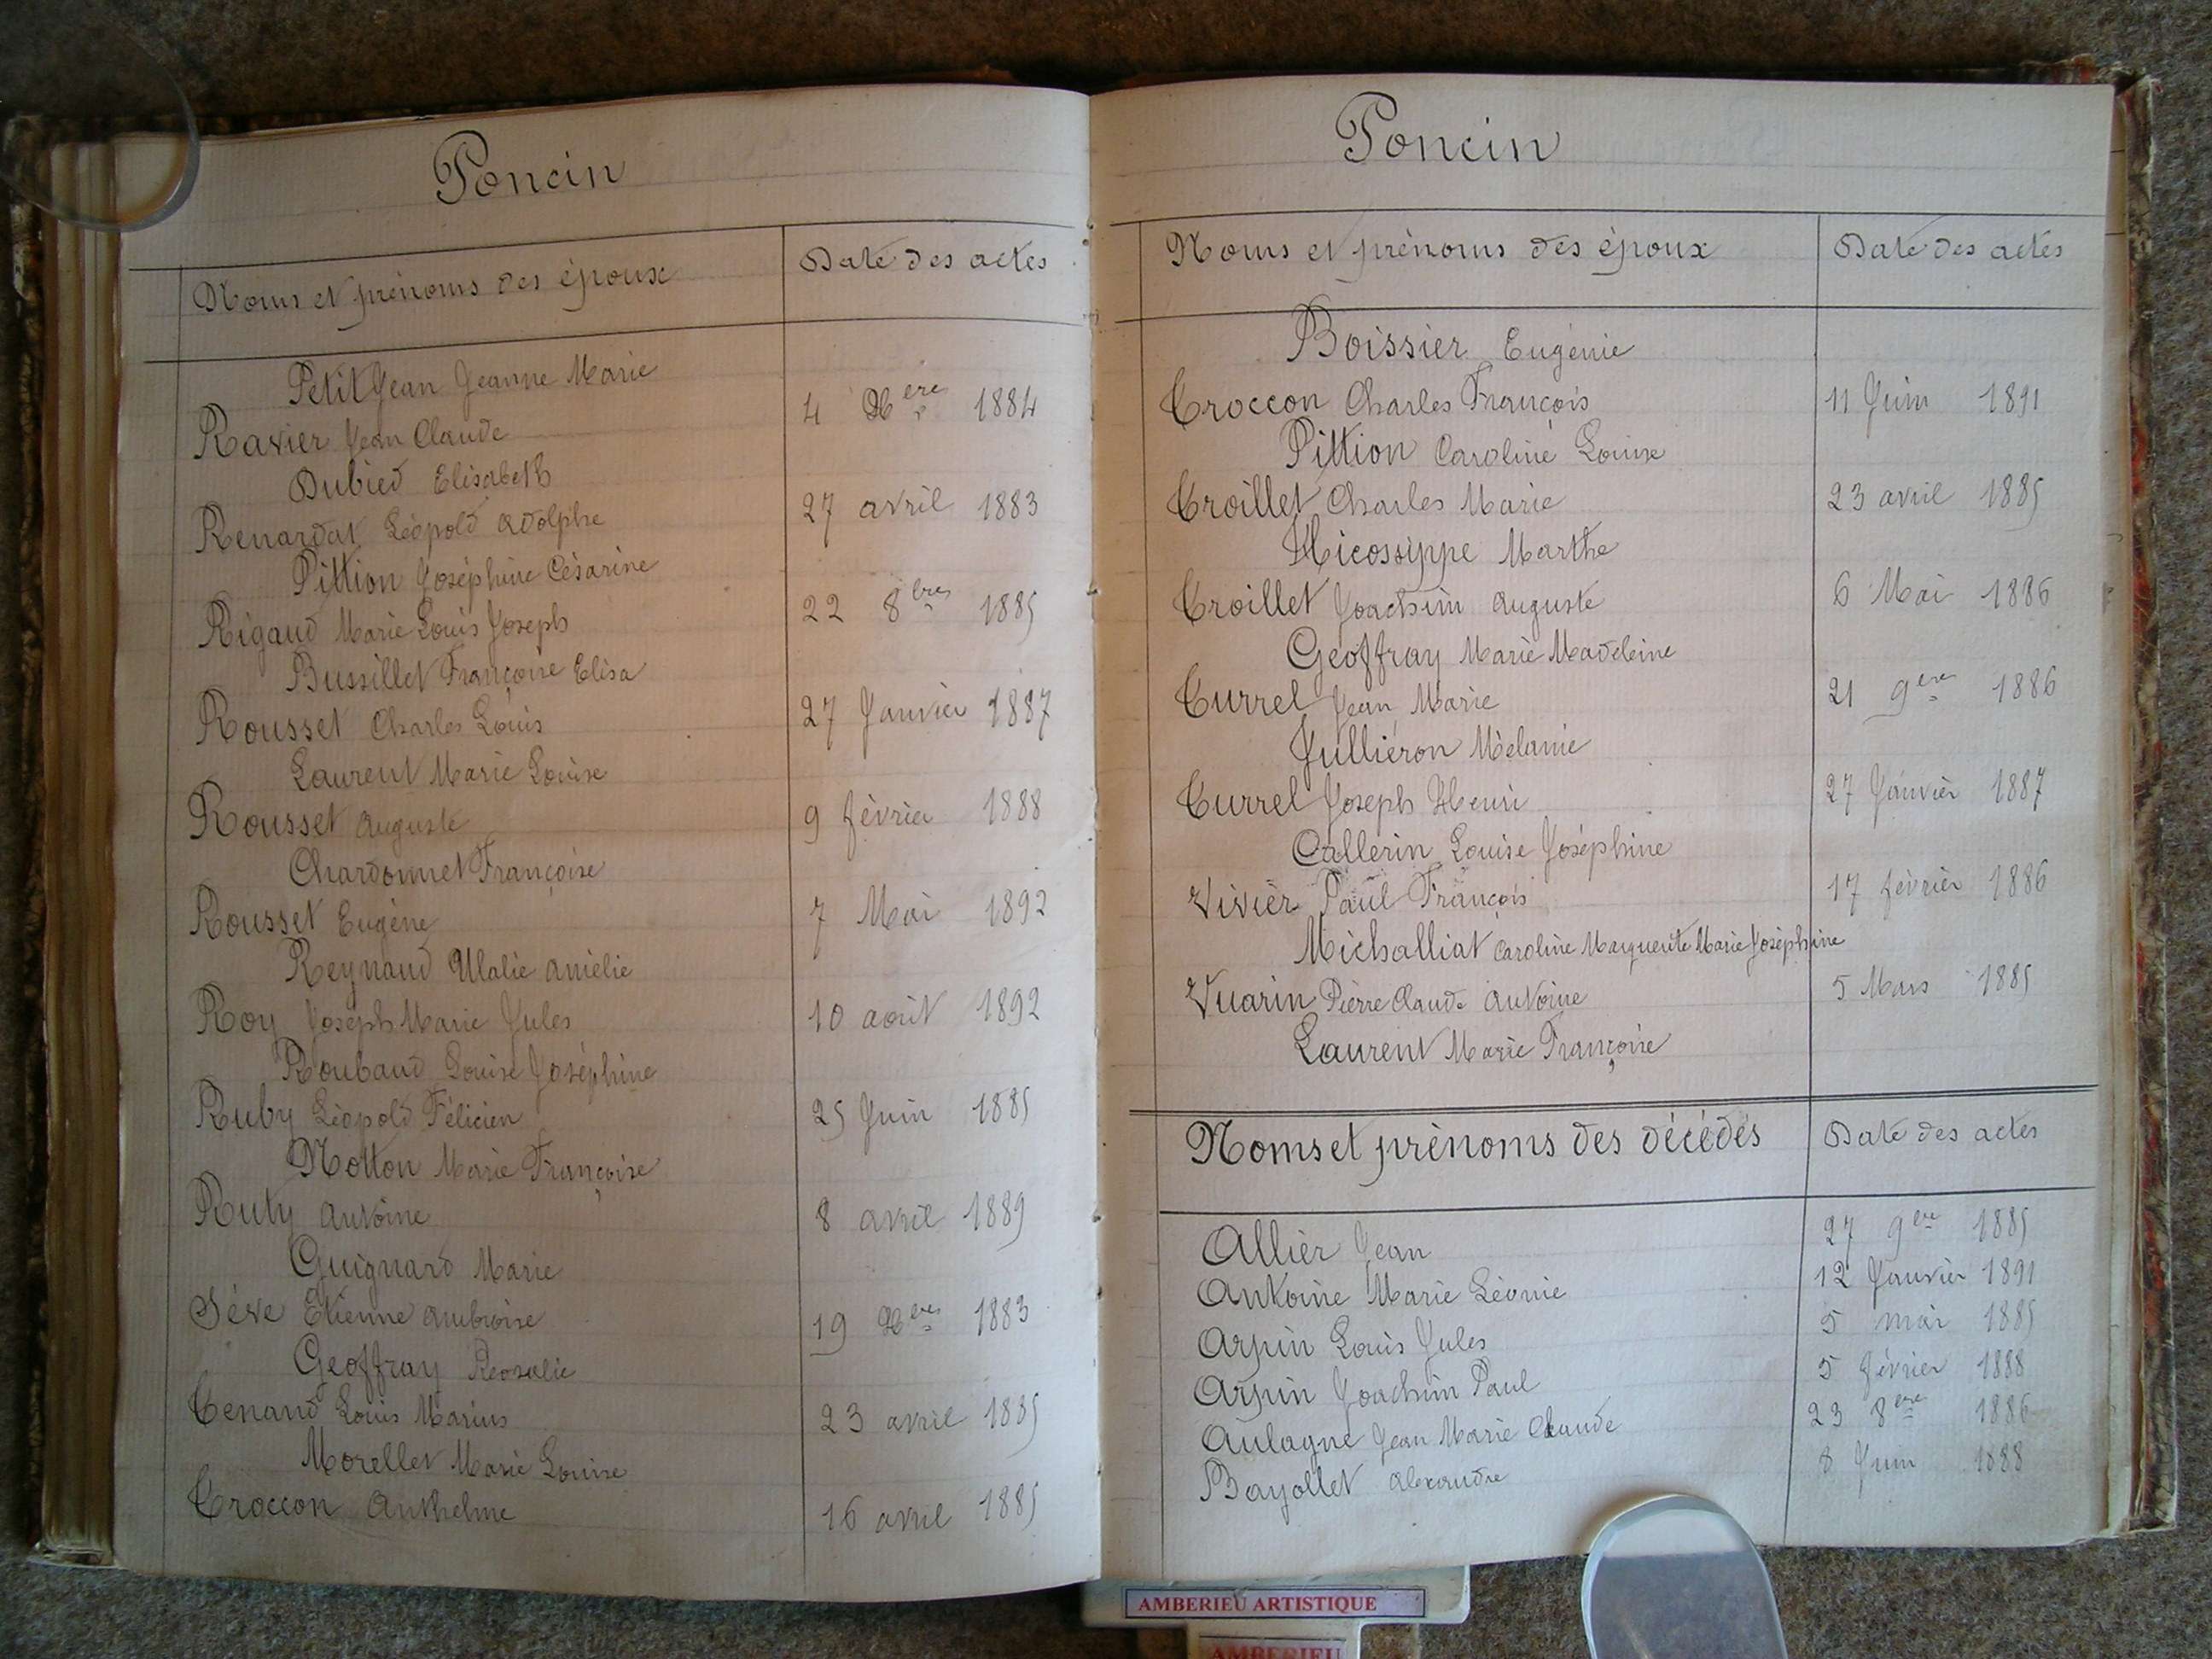 Poncin
Noms et prénoms des époux Date des actes
PetitJean Jeanne Marie
Ravier Jean Claude 4 Xere 1884
Dubied Elisabeth
Renardat Léopold Adolphe 27 avril 1883
Pittion Joséphine Césarine
Rigaud Marie Louis Joseph 22 8bres 1885
Bussillet Françoise Elisa
Rousset Charles Louis 27 Janvier 1887
Laurent Marie Louise
Rousset Auguste 9 février 1888
Chardonnet Françoise
Rousset Eugène 7 Mai 1892
Reynaud Ulalie Amélie
Roy Joseph Marie Jules 10 août 1892
Roubaud Louise Joséphine
Ruby Léopold Félicien 25 Juin 1885
Notton Marie Françoise
Ruty Antoine 8 avril 1889
Guignard Marie
Séve Etienne Ambroise 19 Xeres 1883
Geoffray Rosalie
Tenand Louis Marius 23 avril 1885
Morellet Marie Louise
Troccon Anthelme 16 avril 1885
Poncin
Noms et prénoms des époux Date des actes
Boissier Eugénie
Troccon Charles François 11 Juin 1891
Pittion Caroline Louise
Troillet Charles Marie 23 avril 1885
Hicossippe Marthe
Troillet Joachim Auguste 6 Mai 1886
Geoffray Marie Madeleine
Turrel Jean Marie 21 9ere 1886
Julliéron Mélanie
Turrel Joseph Henri 27 Janvier 1887
Callerin Louise Joséphine
Vivier Paul François 17 février 1886
Michalliat Caroline Marguerite Marie Joséphine
Vuarin Pierre Claude Antoine 5 Mars 1885
Laurent Marie Françoise
Noms et prénoms des décédés Date des actes
Allier Jean 27 9ere 1885
Antoine Marie Léonie 12 Janvier 1891
Arpin Louis Jules 5 mai 1885
Arpin Joachim Paul 5 février 1888
Aulagne Jean Marie Claude 23 8ere 1886
Bayollet Alexandre 8 Juin 1888
AMBERIEU ARTISTIQUE
AMBERIEU